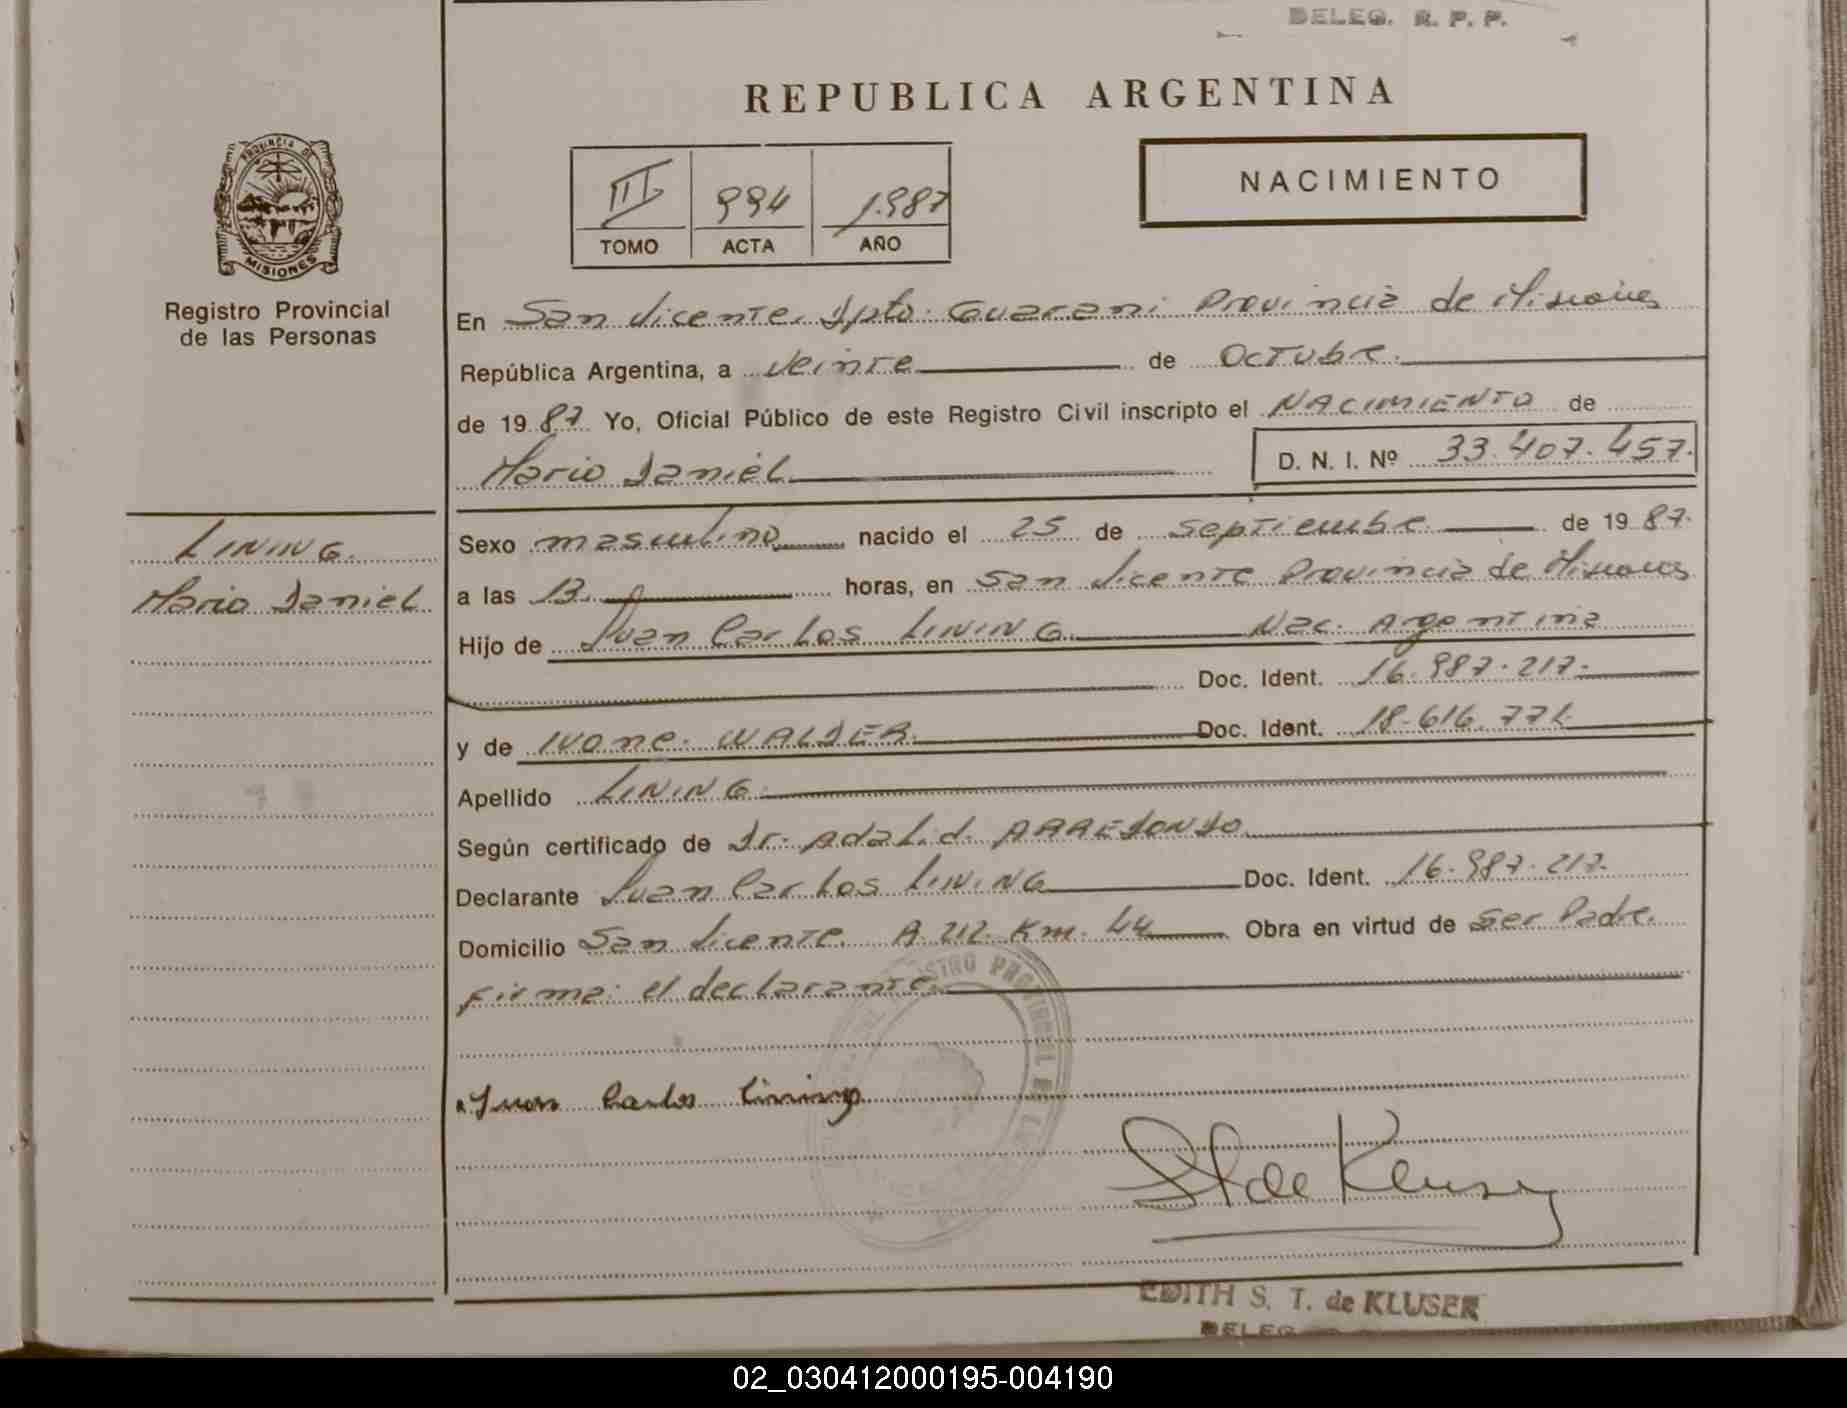 DELEG. R. P. P.
REPUBLICA ARGENTINA
PROVINCIA DE
MISIONES
Registro Provincial
de las Personas
III 994 1.987
TOMO ACTA AÑO
NACIMIENTO
En San Vicente, Dpto. Guarani Provincia de Misiones
República Argentina, a Veinte de Octubre.
de 1987. Yo, Oficial Público de este Registro Civil inscripto el NACIMIENTO de
Mario Daniel D. N. I. Nº 33.407.457.
LINING.
Mario Daniel
Sexo masculino nacido el 25 de Septiembre de 1987.
a las 13. horas, en San Vicente Provincia de Misiones
Hijo de Juan Carlos LINING. Nac. Argentina
Doc. Ident. 16.987.217.
y de Ivone. WALDER. Doc. Ident. 18.616.771.
Apellido LINING.
Según certificado de Dr. Adal.d. ARREDONDO.
Declarante Juan Carlos LINING Doc. Ident. 16.987.217.
Domicilio San Vicente. A. 212. Km. 44 Obra en virtud de Ser Padre.
Firma: el declarante.
Juan Carlos Lining
St de Kluser
EDITH S. T. de KLUSER
DELEG.
02_030412000195-004190